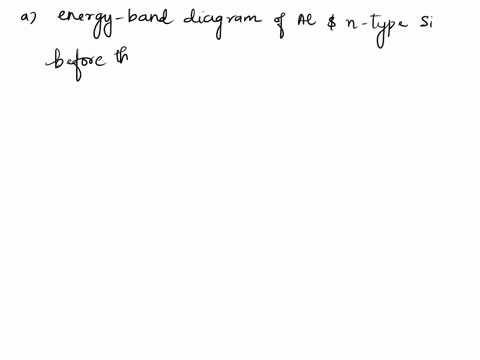 a) energy-band diagram of Al & n-type Si
before th